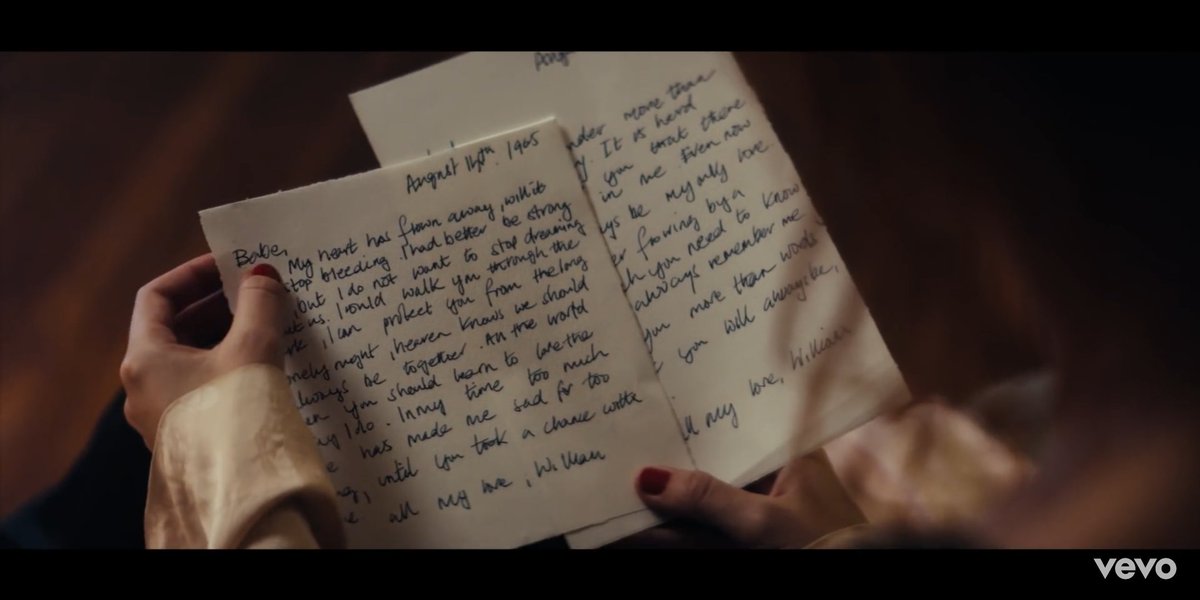 August 14th. 1965
Babe,
My heart has flown away, will it
stop bleeding. I had better be strong
, but I do not want to stop dreaming
us. I could walk you through the
, I can protect you from the long
night, heaven knows we should
always be together. All the world
you should learn to love the
I do. In my time too much
has made me sad for too
, until you took a chance with
all my love, William
Aug
more than
. It is hard
you that there
in me. Even now
be my only love
by a
you need to know
always remember me
you more than words
you will always be,
my love, William
vevo